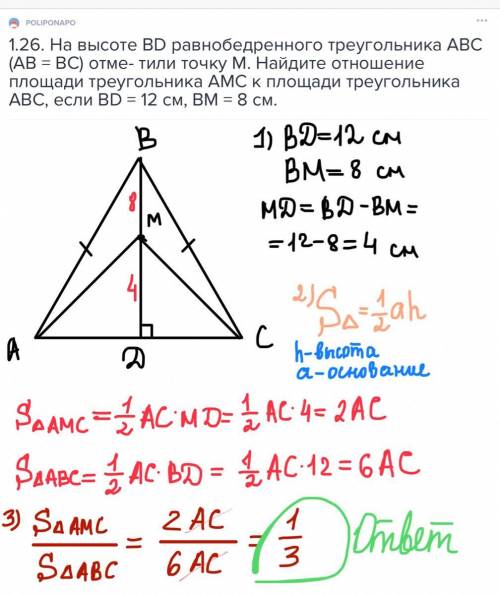 POLIPONAPO
1.26. На высоте BD равнобедренного треугольника ABC
(AB = BC) отме- тили точку М. Найдите отношение
площади треугольника АМС к площади треугольника
АВС, если BD = 12 см, BM = 8 см.
B
8
M
4
A
D
C
1) BD=12 см
BM= 8 см
MD= BD-BM=
=12-8=4 см
2) S△=1/2ah
h-высота
a-основание
S△AMC=1/2 AC·MD=1/2 AC·4=2AC
S△ABC=1/2 AC·BD = 1/2 AC·12=6AC
3) S△AMC/S△ABC = 2AC/6AC = 1/3 Ответ